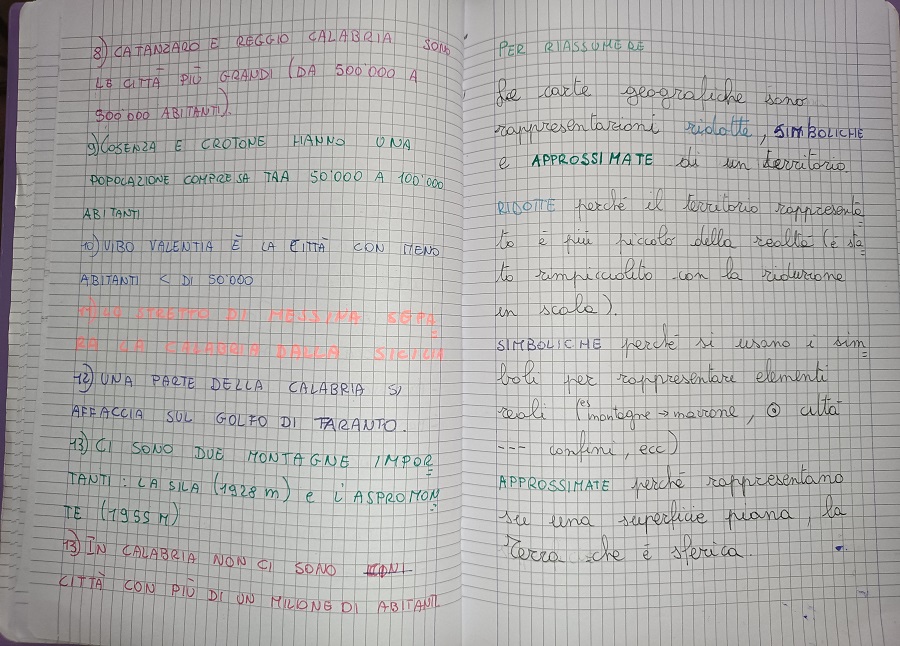 8) CATANZARO E REGGIO CALABRIA SONO
LE CITTÀ PIÙ GRANDI (DA 500'000 A
300'000 ABITANTI).
9) COSENZA E CROTONE HANNO UNA
POPOLAZIONE COMPRESA TRA 50'000 A 100'000
ABITANTI
10) VIBO VALENTIA È LA CITTÀ CON MENO
ABITANTI < DI 50'000
11) LO STRETTO DI MESSINA SEPA
RA LA CALABRIA DALLA SICILIA
12) UNA PARTE DELLA CALABRIA SI
AFFACCIA SUL GOLFO DI TARANTO.
13) CI SONO DUE MONTAGNE IMPOR
TANTI: LA SILA (1928 m) e L'ASPROMON
TE (1955 M)
13) IN CALABRIA NON CI SONO
CITTÀ CON PIÙ DI UN MILIONE DI ABITANTI
PER RIASSUMERE
Le carte geografiche sono
rappresentazioni ridotte, SIMBOLICHE
e APPROSSIMATE di un territorio.
RIDOTTE perché il territorio rappresenta
to è più piccolo della realtà (è sta
to rimpicciolito con la riduzione
in scala).
SIMBOLICHE perché si usano i sim
boli per rappresentare elementi
reali (es montagne → marrone, ⊙ città
--- confini, ecc)
APPROSSIMATE perché rappresentano
su una superficie piana, la
Terra che è sferica.